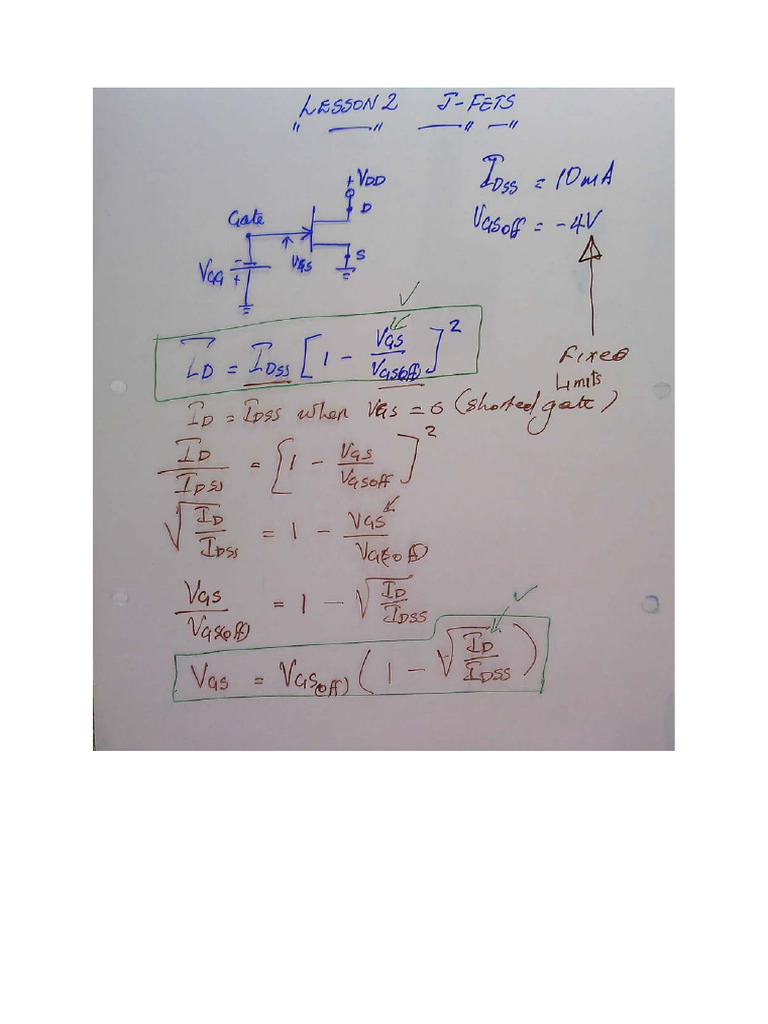 LESSON 2 J-FETS
+VDD
D
Gate
VGG
-
+
VGS
S
IDSS = 10mA
VGSoff = -4V
Fixed
Limits
ID = IDSS [1 - VGS/VGS(off)]²
ID = IDSS when VGS = 0 (shorted gate)
ID/IDSS = [1 - VGS/VGSoff]²
√(ID/IDSS) = 1 - VGS/VGS(off)
VGS/VGS(off) = 1 - √(ID/IDSS)
VGS = VGS(off) (1 - √(ID/IDSS))